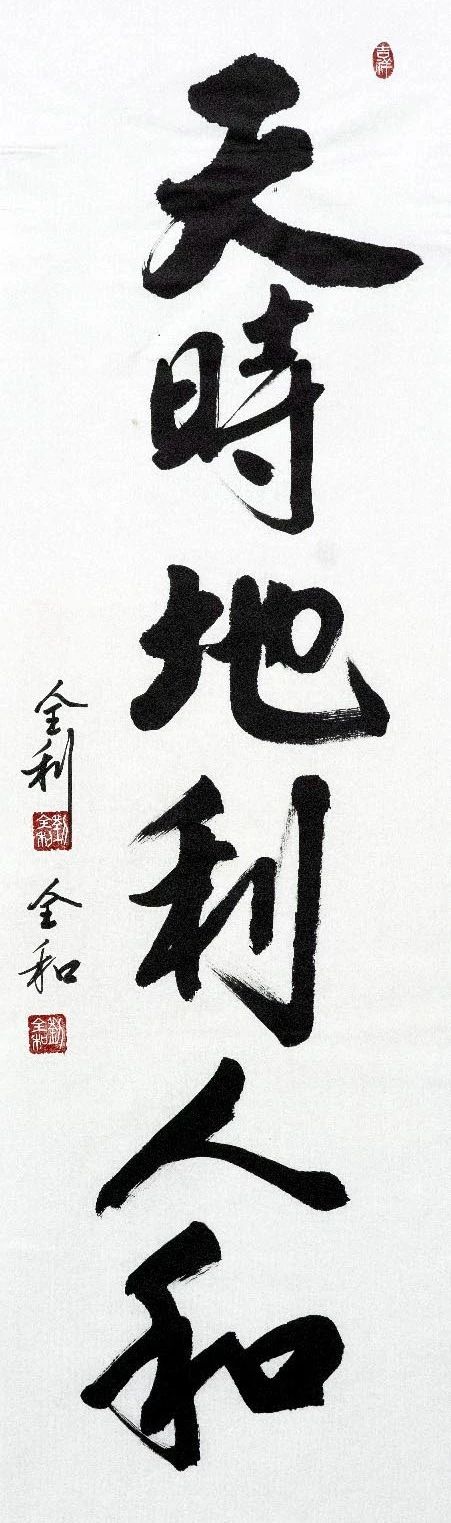 吉祥
天時地利人和
全利
劉全和
全和
劉全和